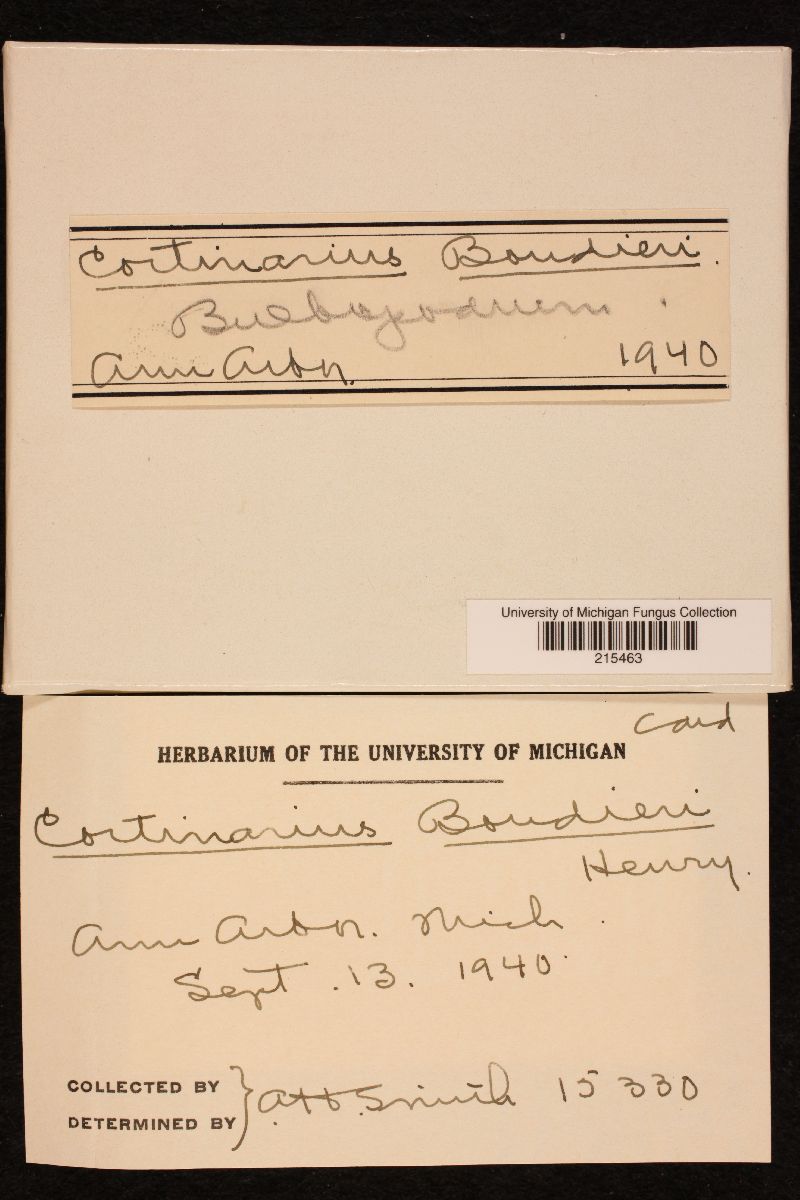 Cortinarius Boudieri.
Bulbopodium.
Ann Arbor. 1940
University of Michigan Fungus Collection
215463
Card
HERBARIUM OF THE UNIVERSITY OF MICHIGAN
Cortinarius Boudieri
Henry.
Ann Arbor. Mich.
Sept. 13. 1940.
COLLECTED BY
DETERMINED BY } A.H. Smith 15330